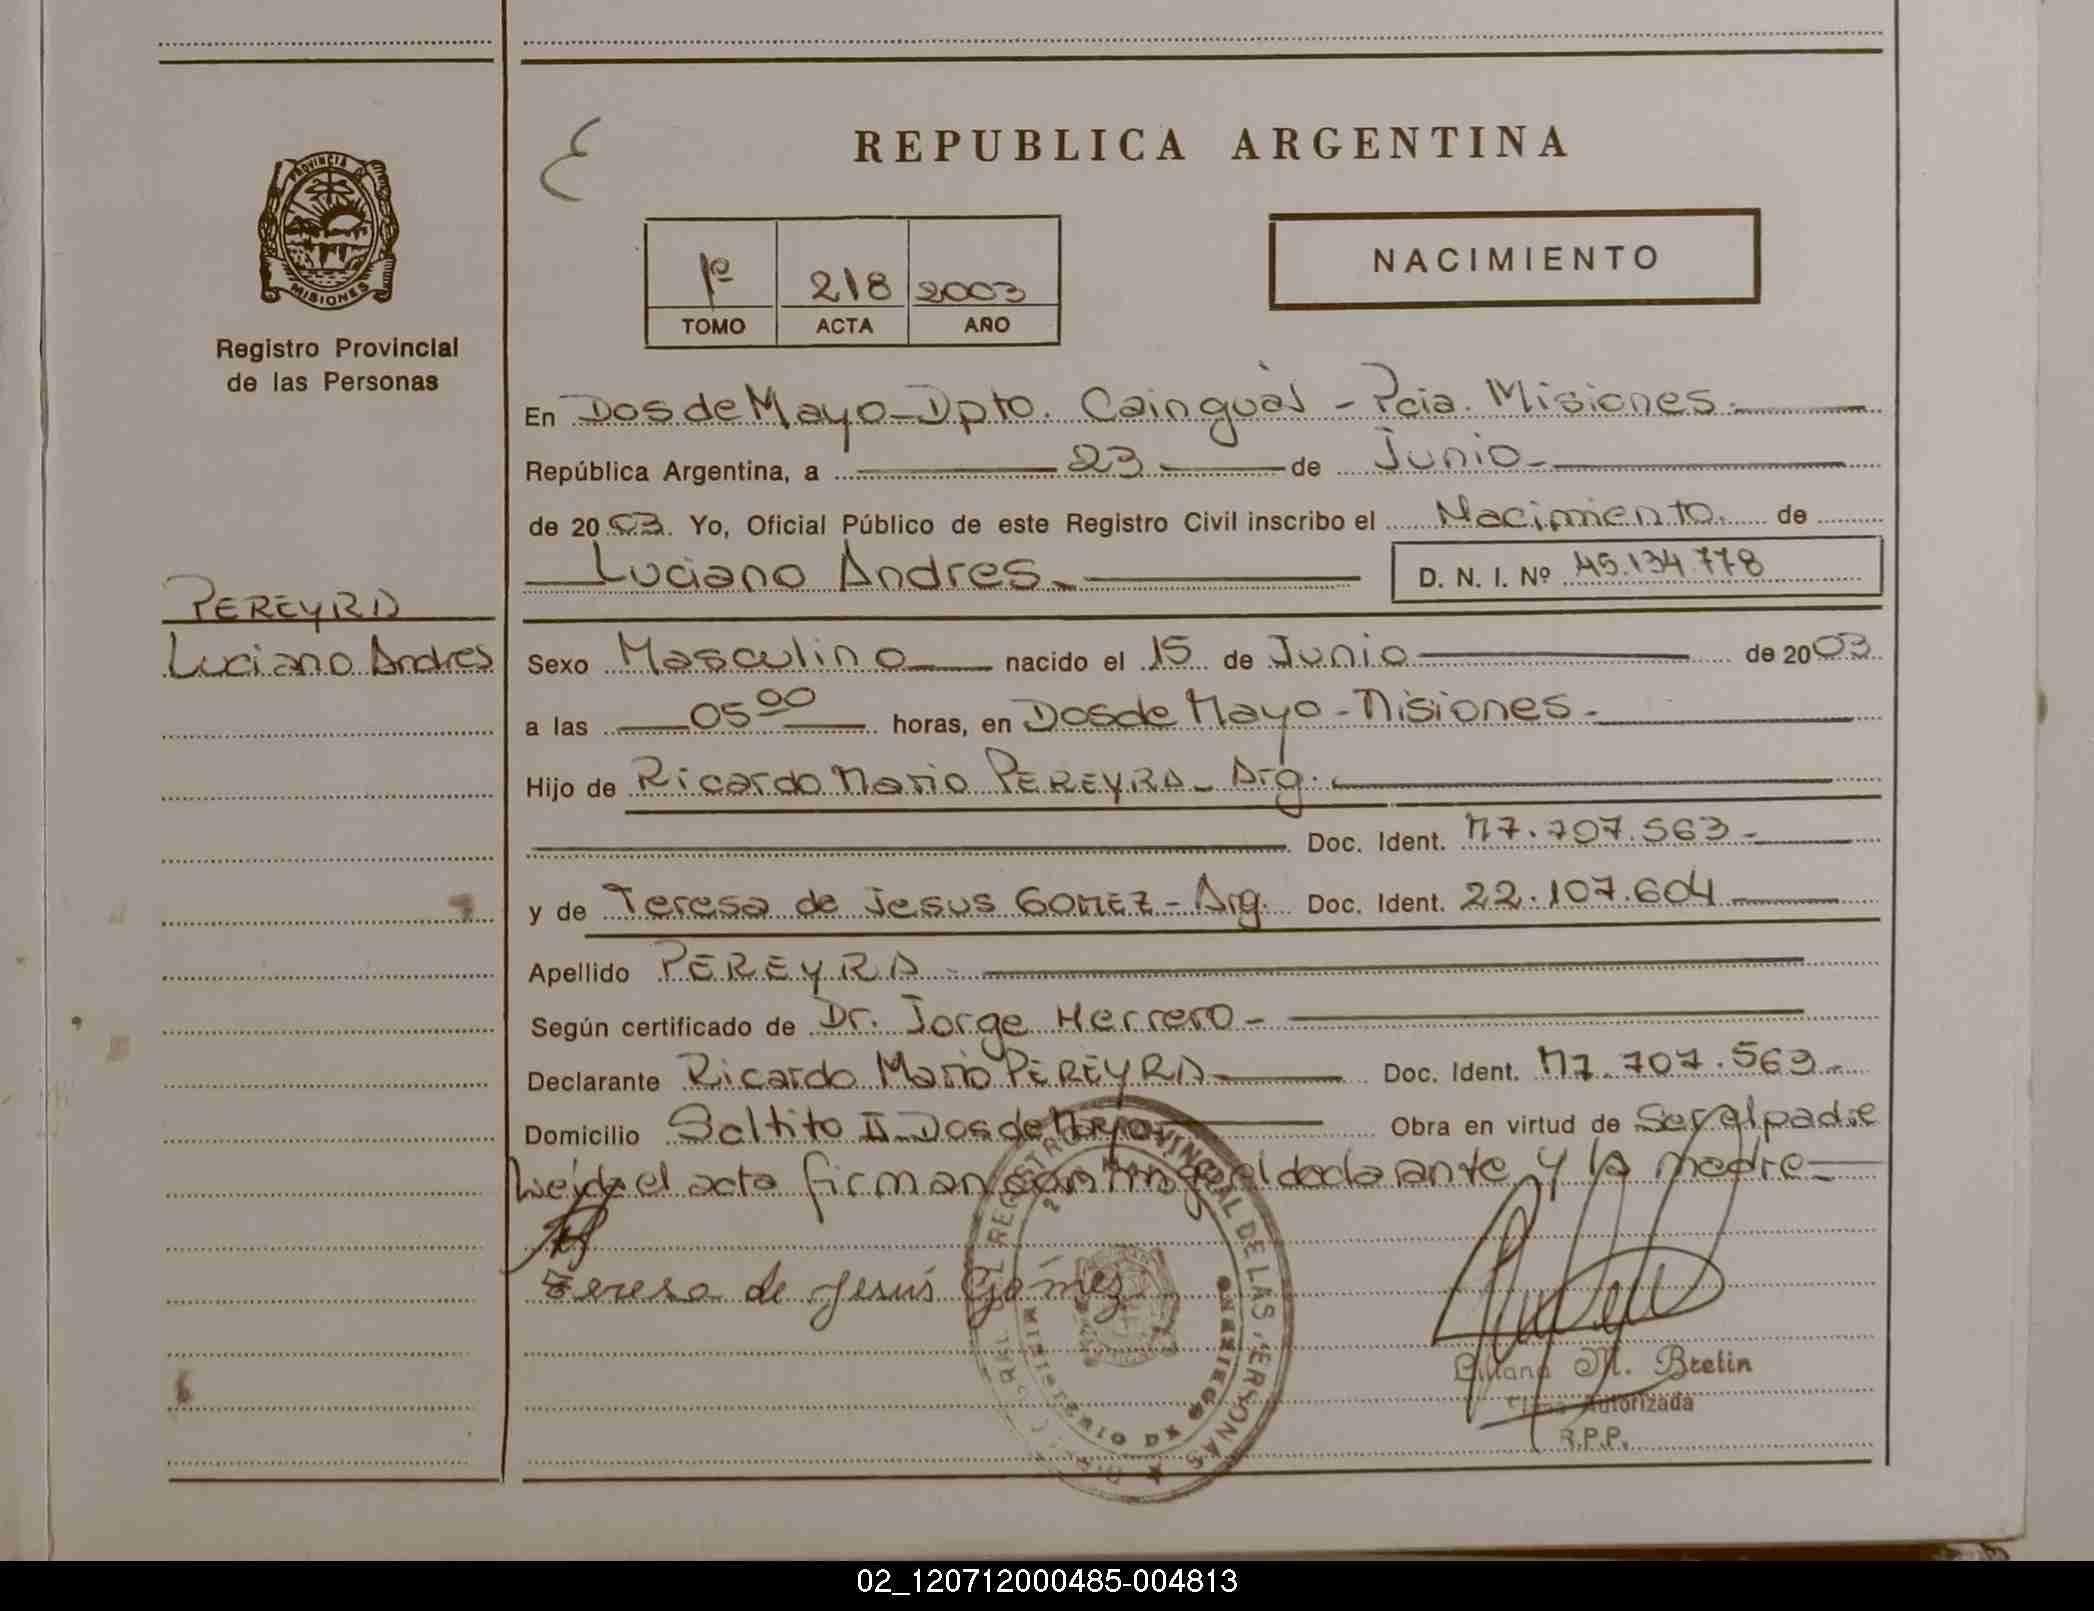 REPUBLICA ARGENTINA
PROVINCIA DE
MISIONES
Registro Provincial
de las Personas
1º 218 2003
TOMO ACTA AÑO
NACIMIENTO
En Dos de Mayo - Dpto. Cainguàs - Pcia. Misiones.
República Argentina, a 23 de Junio
de 2003. Yo, Oficial Público de este Registro Civil inscribo el Nacimiento de
Luciano Andres D. N. I. Nº 45.134.778
PEREYRA
Luciano Andres
Sexo Masculino nacido el 15 de Junio de 2003
a las 05 00 horas, en Dos de Mayo - Misiones -
Hijo de Ricardo Mario PEREYRA - Arg.
Doc. Ident. M7.707.563 -
y de Teresa de Jesus GOMEZ - Arg. Doc. Ident. 22.107.604
Apellido PEREYRA -
Según certificado de Dr. Jorge Herrero -
Declarante Ricardo Mario PEREYRA Doc. Ident. M7.707.563 -
Domicilio Saltito II - Dos de Mayo - Obra en virtud de Ser el padre
Leída el acta firman conmigo el declarante y la madre -
Teresa de Jesús Gómez
REGISTRO PROVINCIAL DE LAS PERSONAS
MINISTERIO DE GOBIERNO
Liliana M. Brelin
Firma Autorizada
R.P.P.
02_120712000485-004813